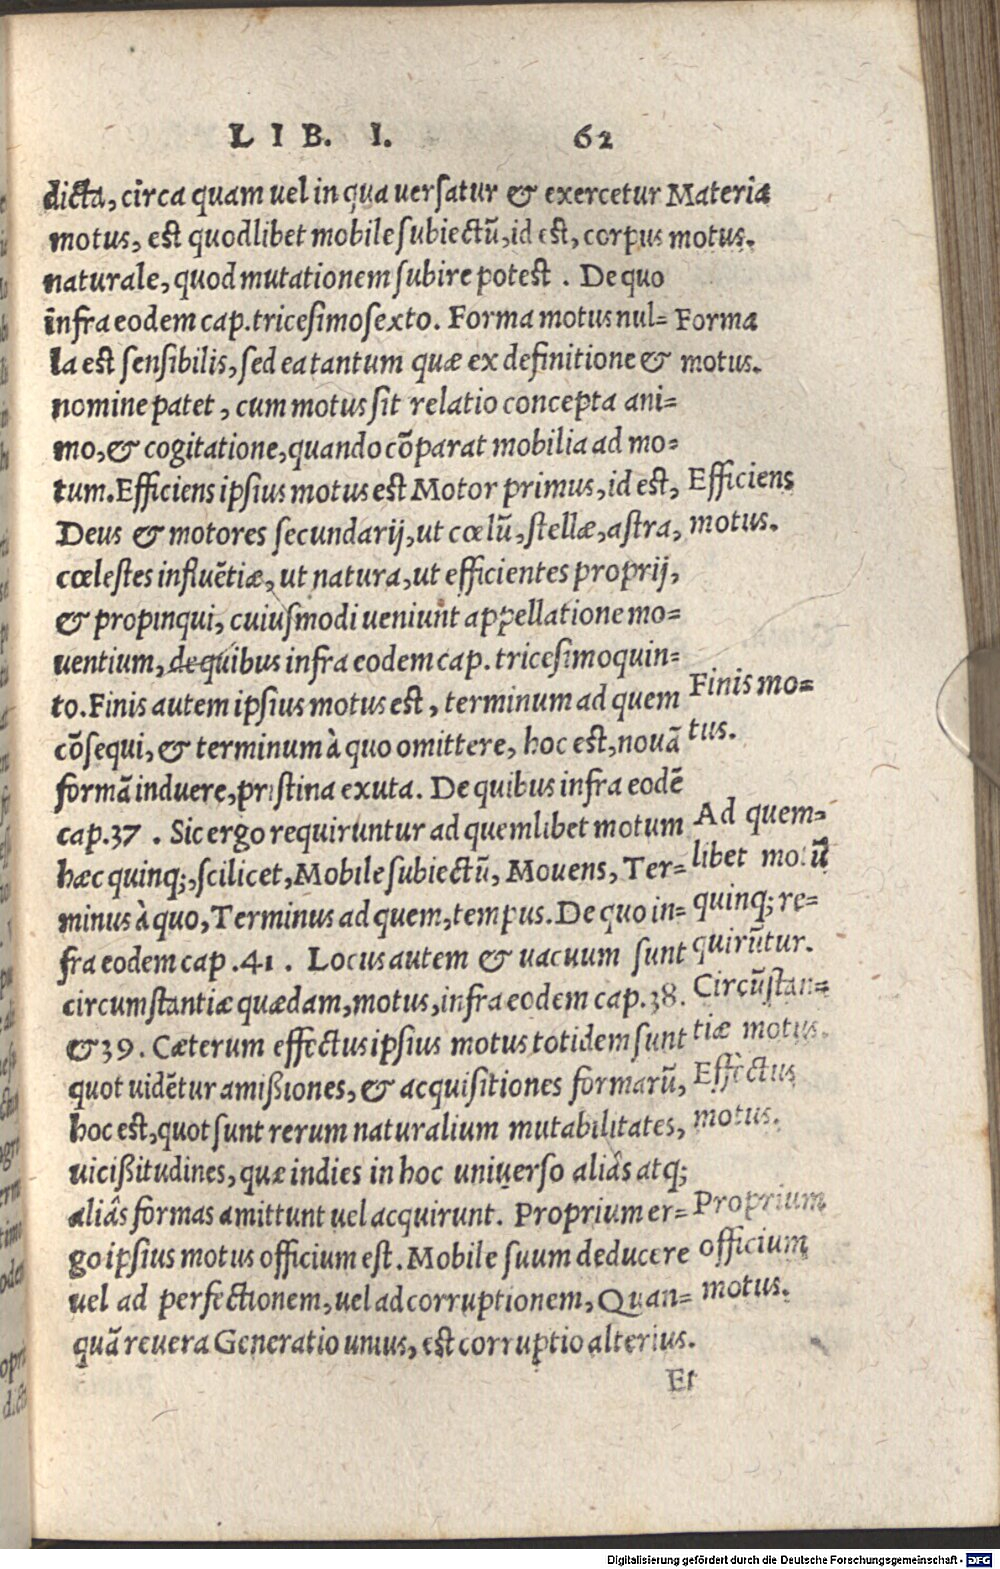 LIB. I. 62
dicta, circa quam uel in qua uersatur & exercetur
motus, est quodlibet mobile subiectũ, id est, corpus
naturale, quod mutationem subire potest . De quo
infra eodem cap. tricesimosexto. Forma motus nul=
la est sensibilis, sed ea tantum quæ ex definitione &
nomine patet , cum motus sit relatio concepta ani=
mo, & cogitatione, quando cõparat mobilia ad mo=
tum. Efficiens ipsius motus est Motor primus, id est,
Deus & motores secundarij, ut cœlũ, stellæ, astra,
cœlestes influẽtiæ, ut natura, ut efficientes proprij,
& propinqui, cuiusmodi ueniunt appellatione mo=
uentium, de quibus infra eodem cap. tricesimoquin=
to. Finis autem ipsius motus est , terminum ad quem
cõsequi, & terminum à quo omittere, hoc est, nouã
formã induere, pristina exuta. De quibus infra eodẽ
cap. 37 . Sic ergo requiruntur ad quemlibet motum
hæc quinq;, scilicet, Mobile subiectũ, Mouens, Ter=
minus à quo, Terminus ad quem, tempus. De quo in=
fra eodem cap . 41 . Locus autem & uacuum sunt
circumstantiæ quædam, motus, infra eodem cap. 38.
& 39 . Cæterum effectus ipsius motus totidem sunt
quot uidẽtur amißiones, & acquisitiones formarũ,
hoc est, quot sunt rerum naturalium mutabilitates,
uicißitudines, quæ indies in hoc uniuerso aliâs atq;
aliâs formas amittunt uel acquirunt. Proprium er=
go ipsius motus officium est. Mobile suum deducere
uel ad perfectionem, uel ad corruptionem, Quan=
quã reuera Generatio unius, est corruptio alterius.
Et
Materia
motus.
Forma
motus.
Efficiens
motus.
Finis mo=
tus.
Ad quem=
libet motũ
quinq; re=
quirũtur.
Circũstan=
tiæ motus.
Effectus
motus.
Proprium
officium
motus.
Digitalisierung gefördert durch die Deutsche Forschungsgemeinschaft - DFG